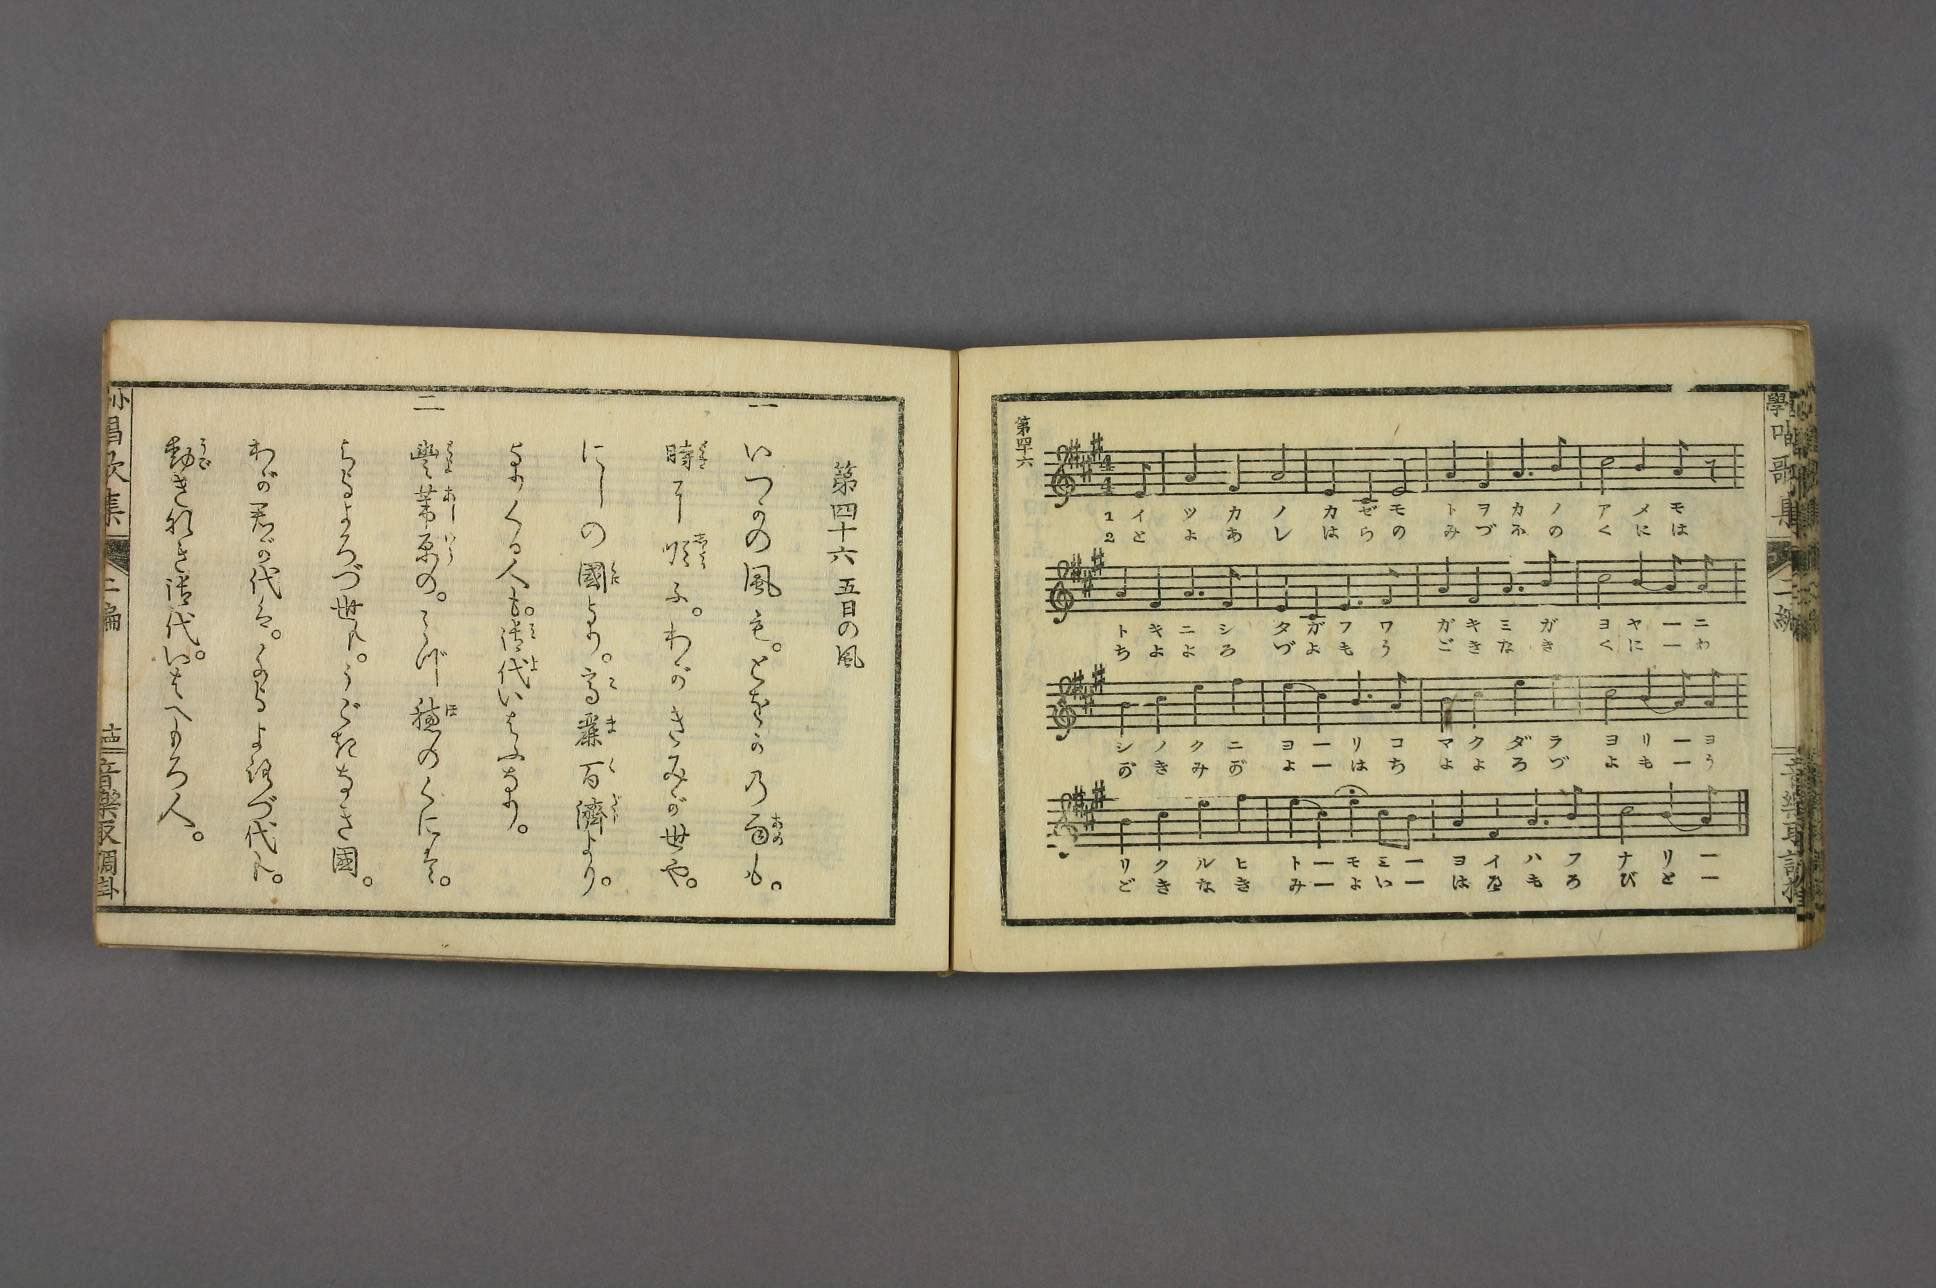 第四十六
1 イツカノカゼモ トヲカノアメモ
2 とよあしはらの みづほのくには
トキニシタガフワ ガキミガヨヤーニ
ちよよろづよもう ごきなきくにーわ
シノクニヨーリコ マクダラヨリーヨ
がきみがよーはち よよろづよもーう
リクルヒトーモミー ヨイハフナリー
ごきなきみーよいー はへもろびとー
第四十六 五日の風
一 いつかの風も。とをかの雨も。
時に順ふ。わがきみが世や。
にしの國より。高麗百濟より。
よりくる人も。御代いはふなり。
二 豐葦原の。みづ穂のくには。
ちよろづ世も。うごきなき國。
わが君が代は。ちよよろづ代も。
動きなき御代。いはへもろ人。
唱歌集 二編 音樂取調掛